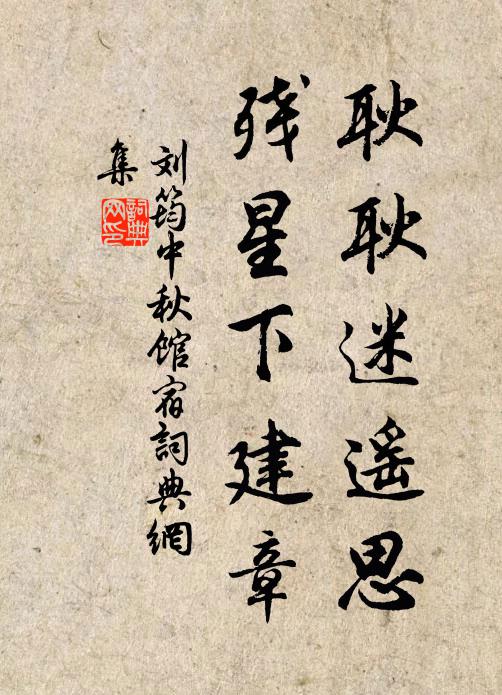 耿耿迷遥思
残星下建章
刘筠中秋馆宿詞典網
集
詞典
网印